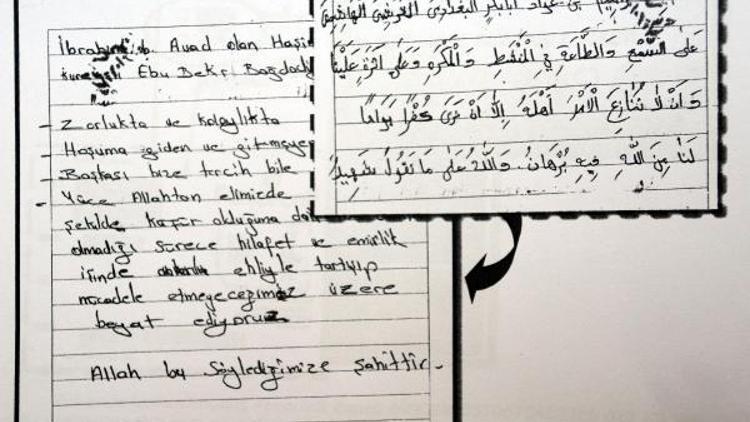 İbrahim b. Avad olan Haşim
Kureyşli Ebu Bekr Bağdadi
- Zorlukta ve kolaylıkta
- Hoşuma giden ve gitmeyen
- Başkası bize tercih bile
- Yüce Allahtan elimizde
şekilde kafir olduğuna dair
olmadığı sürece hilafet ve emirlik
işinde ehliyle tartışıp
mücadele etmeyeceğimiz üzere
beyat ediyoruz
Allah bu söylediğimize şahittir.
بن عواد ابابكر البغدادي القرشي الهاشمي
على السَّمْعِ وَالطَّاعَةِ فِي الْمَنْشَطِ وَالْمَكْرَهِ وَعَلَى اَثَرَةٍ عَلَيْنَا
وَ اَنْ لَا نُنَازِعَ الْاَمْرَ اَهْلَهُ اِلَّا اَنْ نَرَى كُفْرًا بَوَاحًا
لَنَا مِنَ اللّٰهِ فِيهِ بُرْهَانٌ وَاللّٰهُ عَلَى مَا نَقُولُ شَهِيدٌ